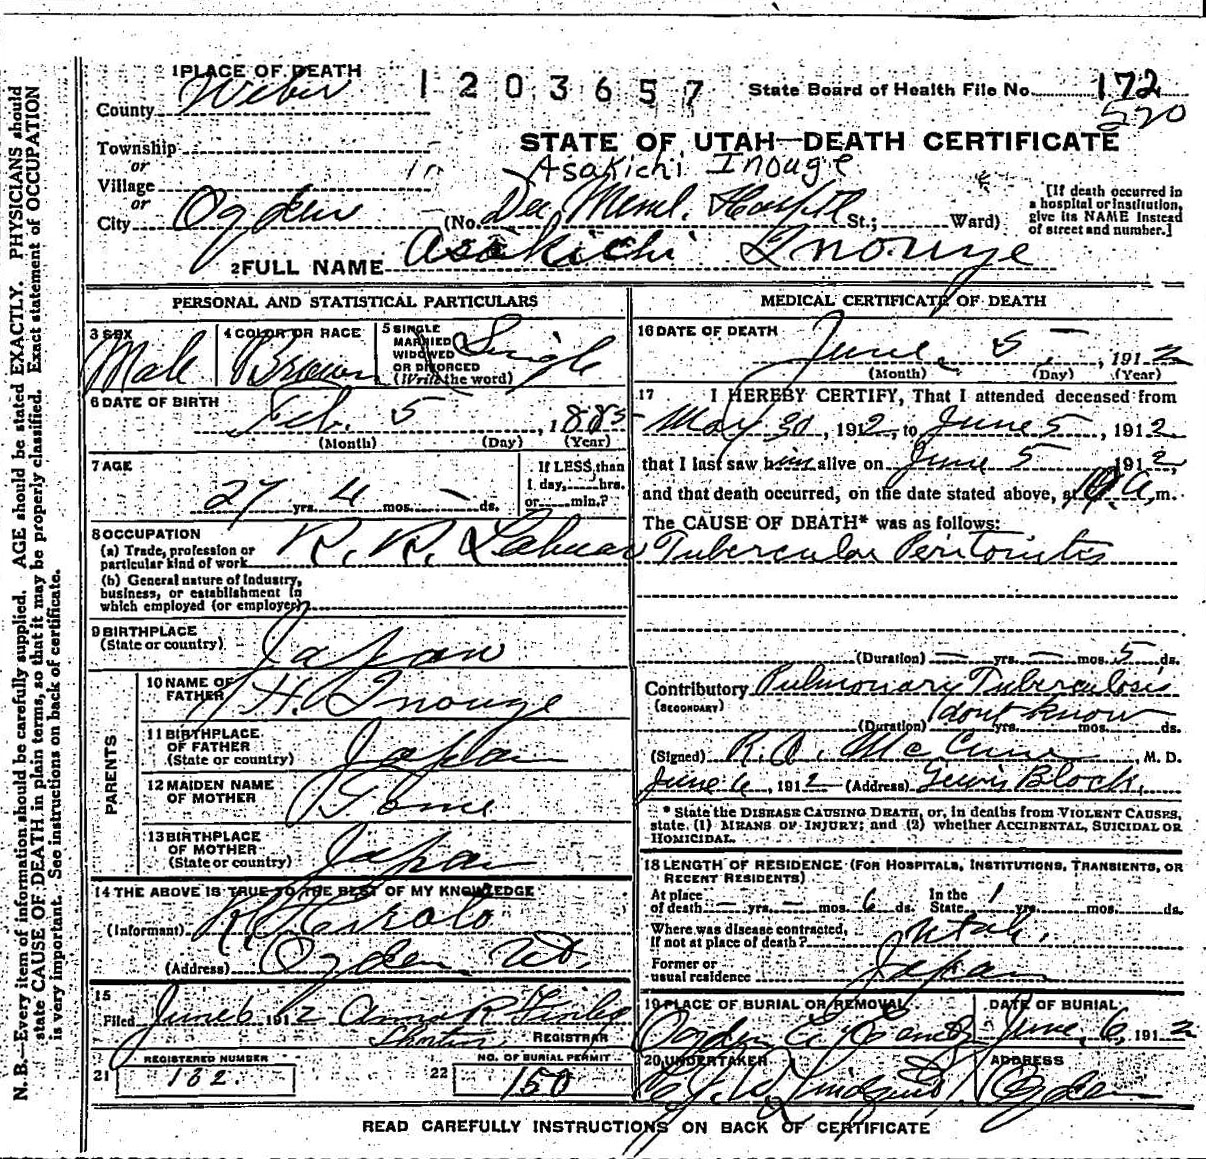 1 PLACE OF DEATH
1203657
State Board of Health File No. 172
570
County Weber
STATE OF UTAH—DEATH CERTIFICATE
Township
or
Village
or
Asakichi Inouge
City Ogden (No. Dee Meml. Hospitl St.; Ward)
[If death occurred in
a hospital or institution,
give its NAME instead
of street and number.]
2 FULL NAME Asakichi Inouye
PERSONAL AND STATISTICAL PARTICULARS
3 SEX
Male
4 COLOR OR RACE
Brown
5 SINGLE
MARRIED
WIDOWED
OR DIVORCED
(Write the word)
Single
6 DATE OF BIRTH
Feb. 5, 1885
(Month) (Day) (Year)
7 AGE
27 yrs. 4 mos. — ds.
If LESS than
1 day, hrs.
or min.?
8 OCCUPATION
(a) Trade, profession or
particular kind of work R. R. Labuar
(b) General nature of industry,
business, or establishment in
which employed (or employer)
9 BIRTHPLACE
(State or country) Japan
PARENTS
10 NAME OF
FATHER H. Inouye
11 BIRTHPLACE
OF FATHER
(State or country) Japan
12 MAIDEN NAME
OF MOTHER
13 BIRTHPLACE
OF MOTHER
(State or country) Japan
14 THE ABOVE IS TRUE TO THE BEST OF MY KNOWLEDGE
(Informant) K.
(Address) Ogden Ut.
15
Filed June 6 1912 Anna R Finley
REGISTRAR
REGISTERED NUMBER
21 132.
NO. OF BURIAL PERMIT
22 150
MEDICAL CERTIFICATE OF DEATH
16 DATE OF DEATH
June 5, 1912
(Month) (Day) (Year)
17 I HEREBY CERTIFY, That I attended deceased from
May 30, 1912, to June 5, 1912
that I last saw him alive on June 5 1912,
and that death occurred, on the date stated above, at a.m.
The CAUSE OF DEATH* was as follows:
Tubercular Peritonitis
(Duration) — yrs. — mos. 5 ds.
Contributory Pulmonary Tuberculosis
(SECONDARY)
(Duration) dont know yrs. mos. ds.
(Signed) R. A. McCune M. D.
June 6, 1912 (Address) Lewis Block.
* State the DISEASE CAUSING DEATH, or, in deaths from VIOLENT CAUSES,
state (1) MEANS OF INJURY; and (2) whether ACCIDENTAL, SUICIDAL OR
HOMICIDAL.
18 LENGTH OF RESIDENCE (FOR HOSPITALS, INSTITUTIONS, TRANSIENTS, OR
RECENT RESIDENTS)
At place
of death — yrs. — mos. 6 ds.
In the
State 1 yrs. mos. ds.
Where was disease contracted,
if not at place of death? Utah.
Former or
usual residence Japan
19 PLACE OF BURIAL OR REMOVAL
Ogden
DATE OF BURIAL
June 6, 1912
20 UNDERTAKER
ADDRESS
Ogden
READ CAREFULLY INSTRUCTIONS ON BACK OF CERTIFICATE
N. B.—Every item of information should be carefully supplied. AGE should be stated EXACTLY. PHYSICIANS should
state CAUSE OF DEATH in plain terms, so that it may be properly classified. Exact statement of OCCUPATION
is very important. See instructions on back of certificate.